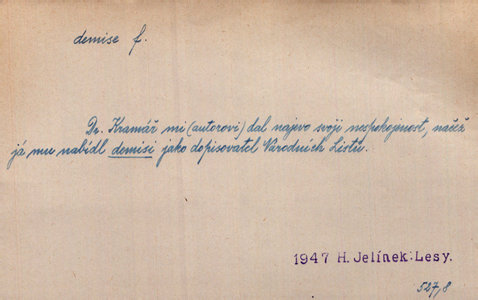 demise f.
Dr. Kramář mi (autorovi) dal najevo svoji nespokojnost, načež
já mu nabídl demisi jako dopisovatel Národních Listů.
1947 H. Jelínek: Lesy.
527,8